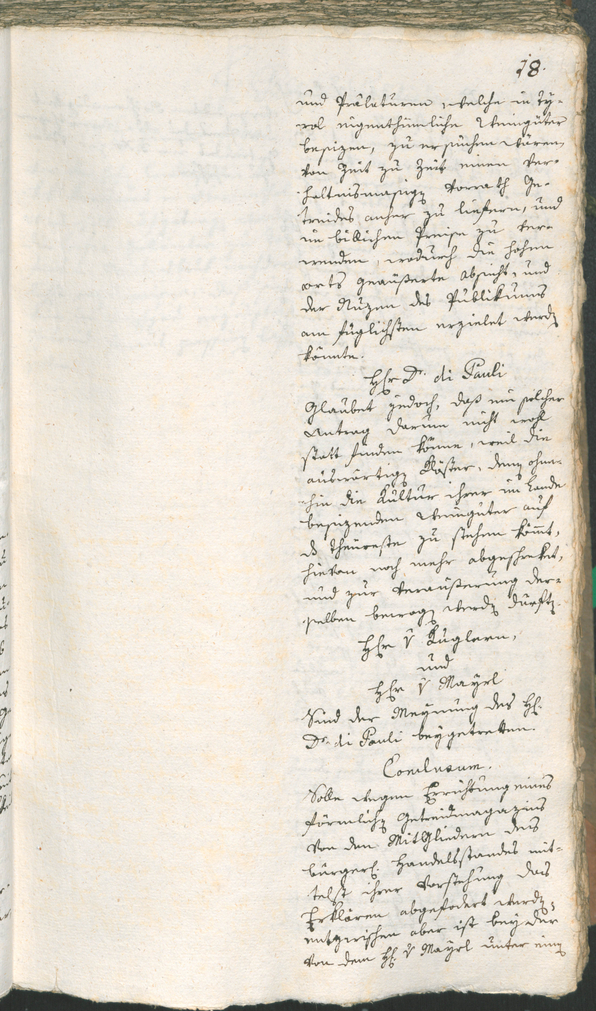 18.
und Prälaturen, welche in Ty-
rol eigenthümliche Weingüter
besizen, zu ersuchen wären,
von Zeit zu Zeit einen ver-
hältnismäsigen Vorrath Ge-
treides anher zu liefern, und
im billichen Preise zu ver-
wenden, wodurch die hohen
orts geäußerte Absicht, und
der Nuzen des Publikums
am füglichsten erzielet werden
könnte.
Hr Dr. di Pauli
Glaubet jedoch, daß ein solcher
Antrag darum nicht wohl
statt finden könne, weil die
auswärtigen Klöster, denen ohne-
hin die Kultur ihrer im Lande
besizenden Weingüter auf
das theureste zu stehen kömmt,
hievon noch mehr abgeschreket,
und zur Veräußerung der-
selben bewogen werden dürften.
Hr v Kuglern,
und
Hr v Mayrl
Sind der Meynung des H
Dr. di Pauli beygetretten.
Conclusum.
Solle wegen Errichtung eines
förmlichen Getreidmagazins
von den Mitgliedern des
bürgerl. Handelsstandes mit-
telst ihrer Vorstehung das
Erklären abgefodert werden,
entzwischen aber ist bey der
von dem H v Mayrl unter einem